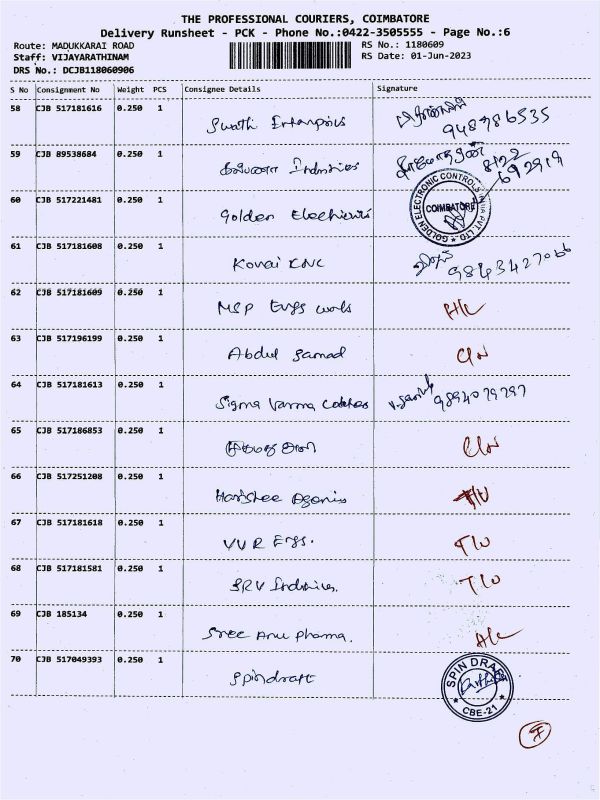 THE PROFESSIONAL COURIERS, COIMBATORE
Delivery Runsheet - PCK - Phone No.:0422-3505555 - Page No.:6
Route: MADUKKARAI ROAD RS No.: 1180609
Staff: VIJAYARATHINAM RS Date: 01-Jun-2023
DRS No.: DCJB118060906
S No Consignment No Weight PCS Consignee Details Signature
58 CJB 517181616 0.250 1
Swathi Enterprises
948786535
59 CJB 89538684 0.250 1
8122
692919
60 CJB 517221481 0.250 1
Golden
GOLDEN ELECTRONIC CONTROLS INDIA PVT. LTD.
COIMBATORE
61 CJB 517181608 0.250 1
Kovai CNC
9843427066
62 CJB 517181609 0.250 1
MSP Engg works
63 CJB 517196199 0.250 1
Abdul Samad
64 CJB 517181613 0.250 1
Sigma Varma
9894079797
65 CJB 517186853 0.250 1
66 CJB 517251208 0.250 1
67 CJB 517181618 0.250 1
VVR Engg.
68 CJB 517181581 0.250 1
SRV Industries.
69 CJB 185134 0.250 1
Sree Anu Pharma.
70 CJB 517049393 0.250 1
Spindraft
SPIN DRAFT
CBE-21